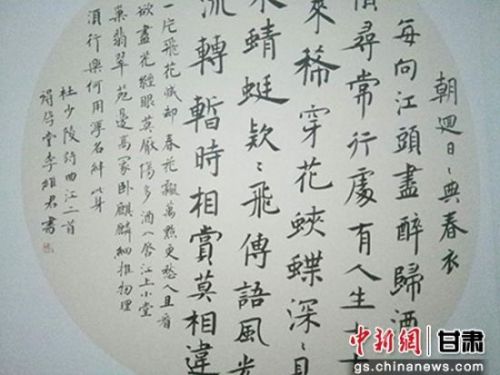 朝迴日〻典春衣
每向江頭盡醉歸酒
尋常行處有人生七
來稀穿花蛺蝶深〻見
水蜻蜓欵〻飛傳語風光
流轉暫時相賞莫相違
一片飛花減却春花飄萬點更愁人且看
欲盡花經眼莫厭傷多酒入唇江上小堂
巢翡翠苑邊高冢臥麒麟細推物理
須行樂何用浮名絆此身
杜少陵詩曲江二首
堂李君書
中新網 甘肃
gs.chinanews.com